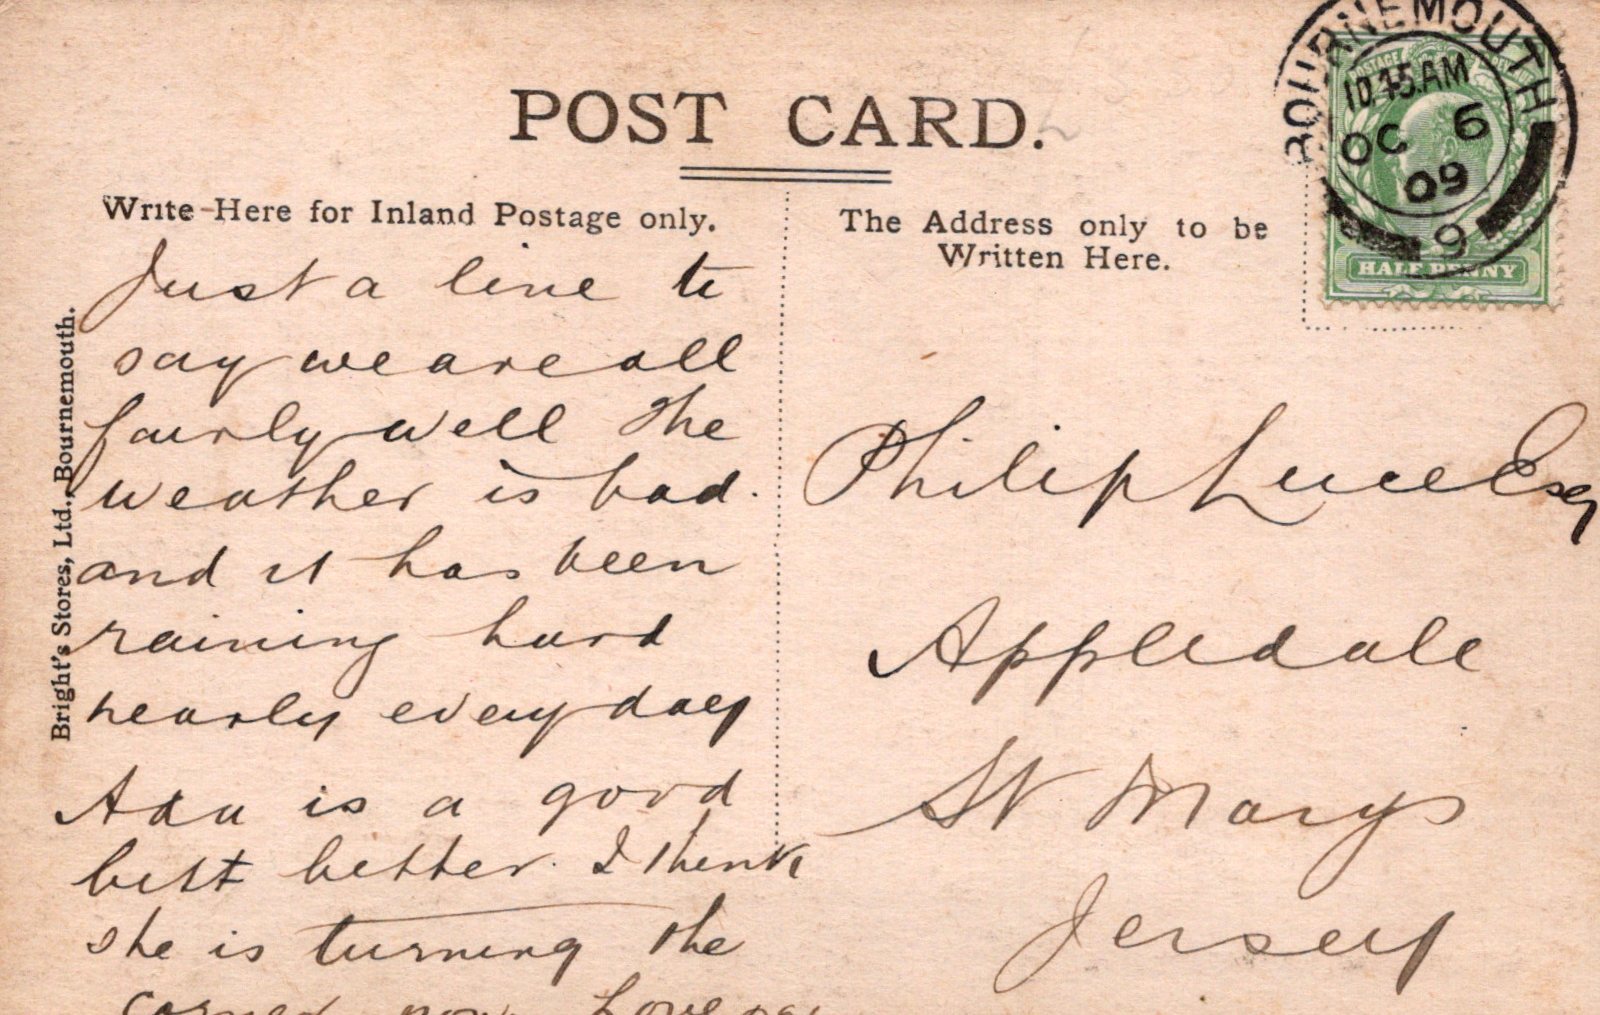 POST CARD.
Write Here for Inland Postage only.
The Address only to be
Written Here.
BOURNEMOUTH
10.45.AM
OC 6
09
9
POSTAGE
HALF PENNY
Bright's Stores, Ltd., Bournemouth.
Just a line to
say we are all
fairly well the
weather is bad.
and it has been
raining hard
nearly every day
Ada is a good
bitt better. I think
she is turning the
corner now
Philip Luce Esq
Appledale
St Marys
Jersey